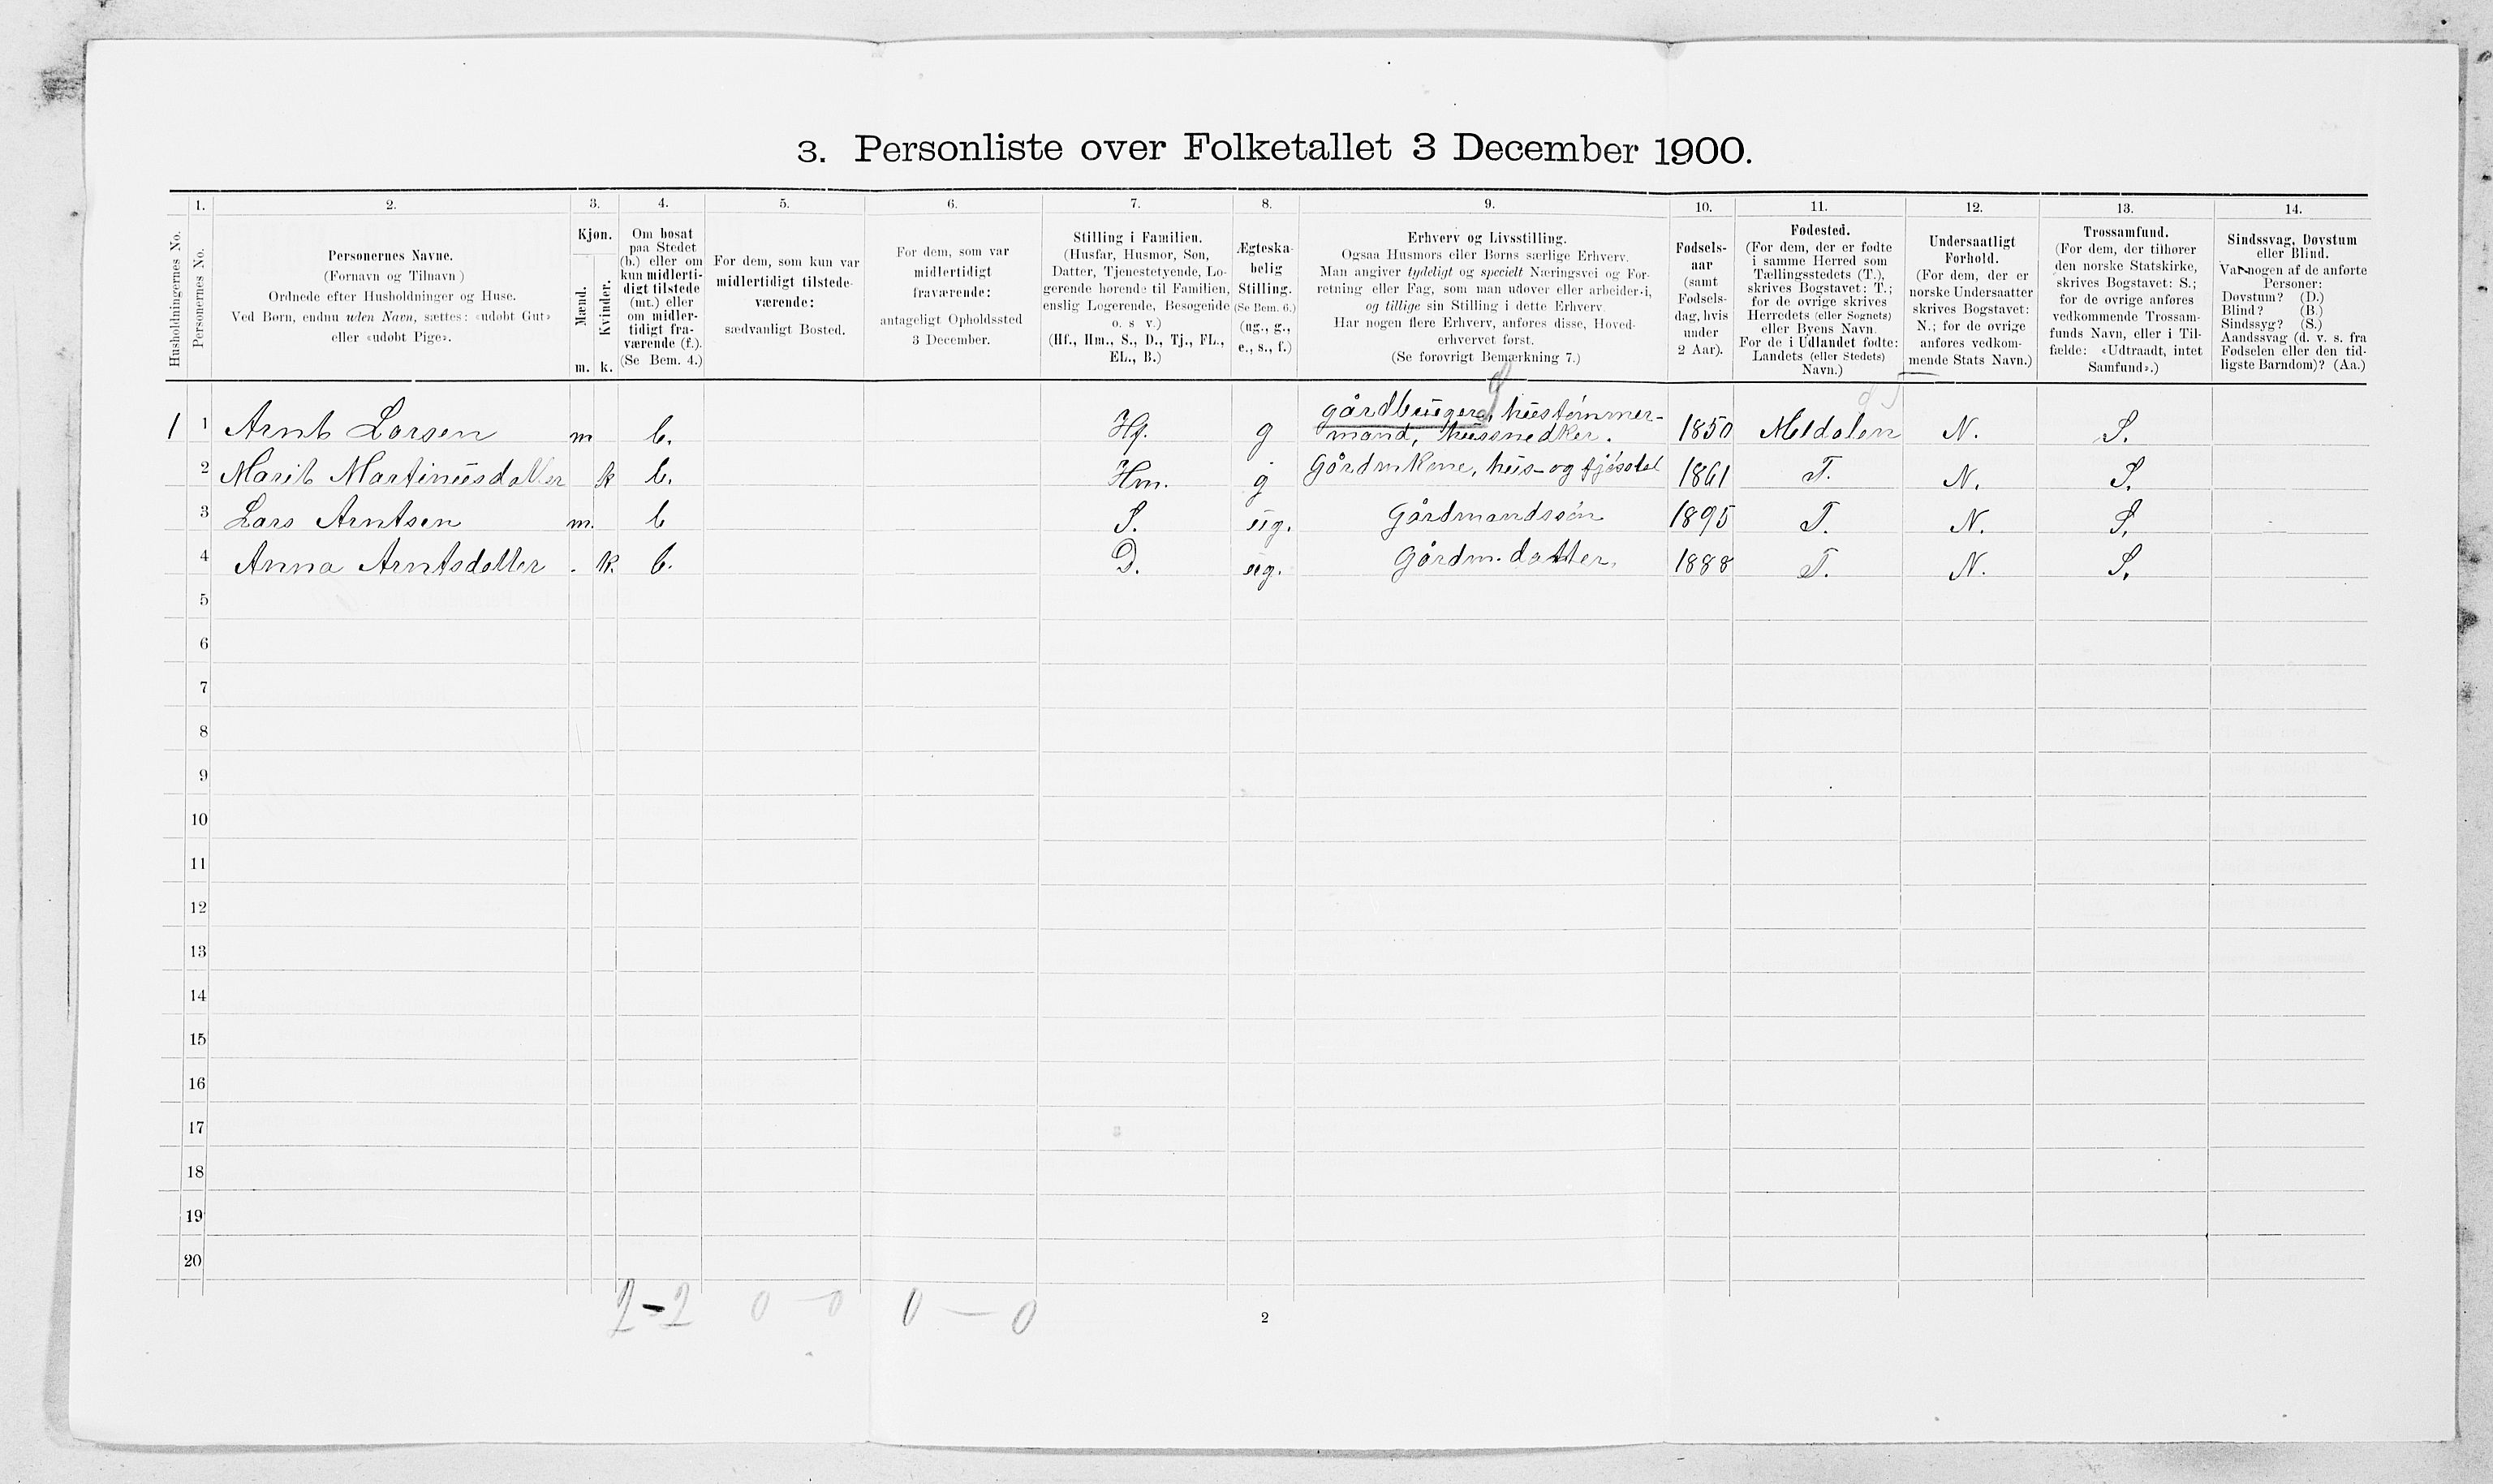 3. Personliste over Folketallet 3 December 1900.
Husholdningernes No.
1.
Personernes No.
2.
Personernes Navne.
(Fornavn og Tilnavn)
Ordnede efter Husholdninger og Huse.
Ved Børn, endnu uden Navn, sættes: «udøbt Gut»
eller «udøbt Pige».
3.
Kjøn.
Mænd.
Kvinder.
m. k.
4.
Om bosat
paa Stedet
(b.) eller om
kun midlerti-
digt tilstede
(mt.) eller
om midler-
tidigt fra-
værende (f.).
(Se Bem. 4.)
5.
For dem, som kun var
midlertidigt tilstede-
værende:
sædvanligt Bosted.
6.
For dem, som var
midlertidigt
fraværende:
antageligt Opholdssted
3 December.
7.
Stilling i Familien.
(Husfar, Husmor, Søn,
Datter, Tjenestetyende, Lo-
gerende hørende til Familien,
enslig Logerende, Besøgende
o. s v.)
(Hf., Hm., S., D., Tj., FL.,
EL., B.)
8.
Ægteska-
belig
Stilling.
(Se Bem. 6.)
(ug., g.,
e., s., f.)
9.
Erhverv og Livsstilling.
Ogsaa Husmors eller Børns særlige Erhverv.
Man angiver tydeligt og specielt Næringsvei og For-
retning eller Fag, som man udøver eller arbeider i,
og tillige sin Stilling i dette Erhverv.
Har nogen flere Erhverv, anføres disse, Hoved-
erhvervet først.
(Se forøvrigt Bemærkning 7.)
10.
Fødsels-
aar
(samt
Fødsels-
dag, hvis
under
2 Aar).
11.
Fødested.
(For dem, der er fødte
i samme Herred som
Tællingsstedets (T.),
skrives Bogstavet: T.;
for de øvrige skrives
Herredets (eller Sognets)
eller Byens Navn.
For de i Udlandet fødte:
Landets (eller Stedets)
Navn.)
12.
Undersaatligt
Forhold.
(For dem, der er
norske Undersaatter
skrives Bogstavet:
N.; for de øvrige
anføres vedkom-
mende Stats Navn.)
13.
Trossamfund.
(For dem, der tilhører
den norske Statskirke,
skrives Bogstavet: S.;
for de øvrige anføres
vedkommende Trossam-
funds Navn, eller i Til-
fælde: «Udtraadt, intet
Samfund».)
14.
Sindssvag, Døvstum
eller Blind.
Var nogen af de anførte
Personer:
Døvstum? (D.)
Blind? (B.)
Sindssyg? (S.)
Aandssvag (d. v. s. fra
Fødselen eller den tid-
ligste Barndom)? (Aa.)
1 1 Arnt Larsen m b. Hf. g gårdbruger, hustømmer-
mand, hussnedker. 1850 Meldalen N. S.
2 Marit Martinusdatter k b. Hm. g Gårdmkone, hus- og fjøsstel 1861 T. N. S.
3 Lars Arntsen m. b S. ug. Gårdmandssøn 1895 T. N. S.
4 Anna Arntsdatter k. b. D. ug. Gårdm. datter. 1888 T. N. S.
5
6
7
8
9
10
11
12
13
14
15
16
17
18
19
20
2-2 0-0 0-0
2